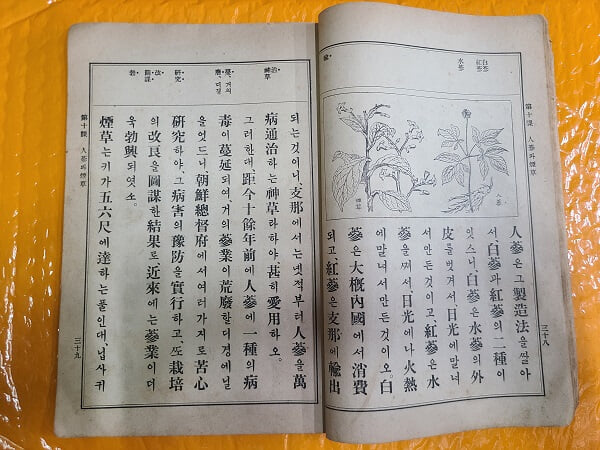 第十課 人蔘과煙草
三十八
白蔘
紅蔘
水蔘
人蔘
煙草
人蔘은그製造法을딸아
서白蔘과紅蔘의二種이
잇스니、白蔘은水蔘의外
皮를벗겨서、日光에말녀
서만든것이고、紅蔘은水
蔘을ᄶᅧ서、日光에나火熱
에말녀서만든것이오、白
蔘은大槪內國에서消費
되고、紅蔘은支那에輸出
治
神草
蔓、거의
廢、디경
硏究
圖謀
勃
되는것이니、支那에서는녯적부터人蔘을萬
病通治하는神草라하야、甚히愛用하오.
그러한대、距今十餘年前에人蔘에一種의病
毒이蔓延되여、거의蔘業이荒廢할디경에닐
을엇드니、朝鮮總督府에서여러가지로苦心
硏究하야、그病害의豫防을實行하고、ᄯᅩ栽培
의改良을圖謀한結果로、近來에는蔘業이더
욱勃興되엿소.
煙草는키가五六尺에達하는풀인대、닙사귀
第十課 人蔘과煙草
三十九